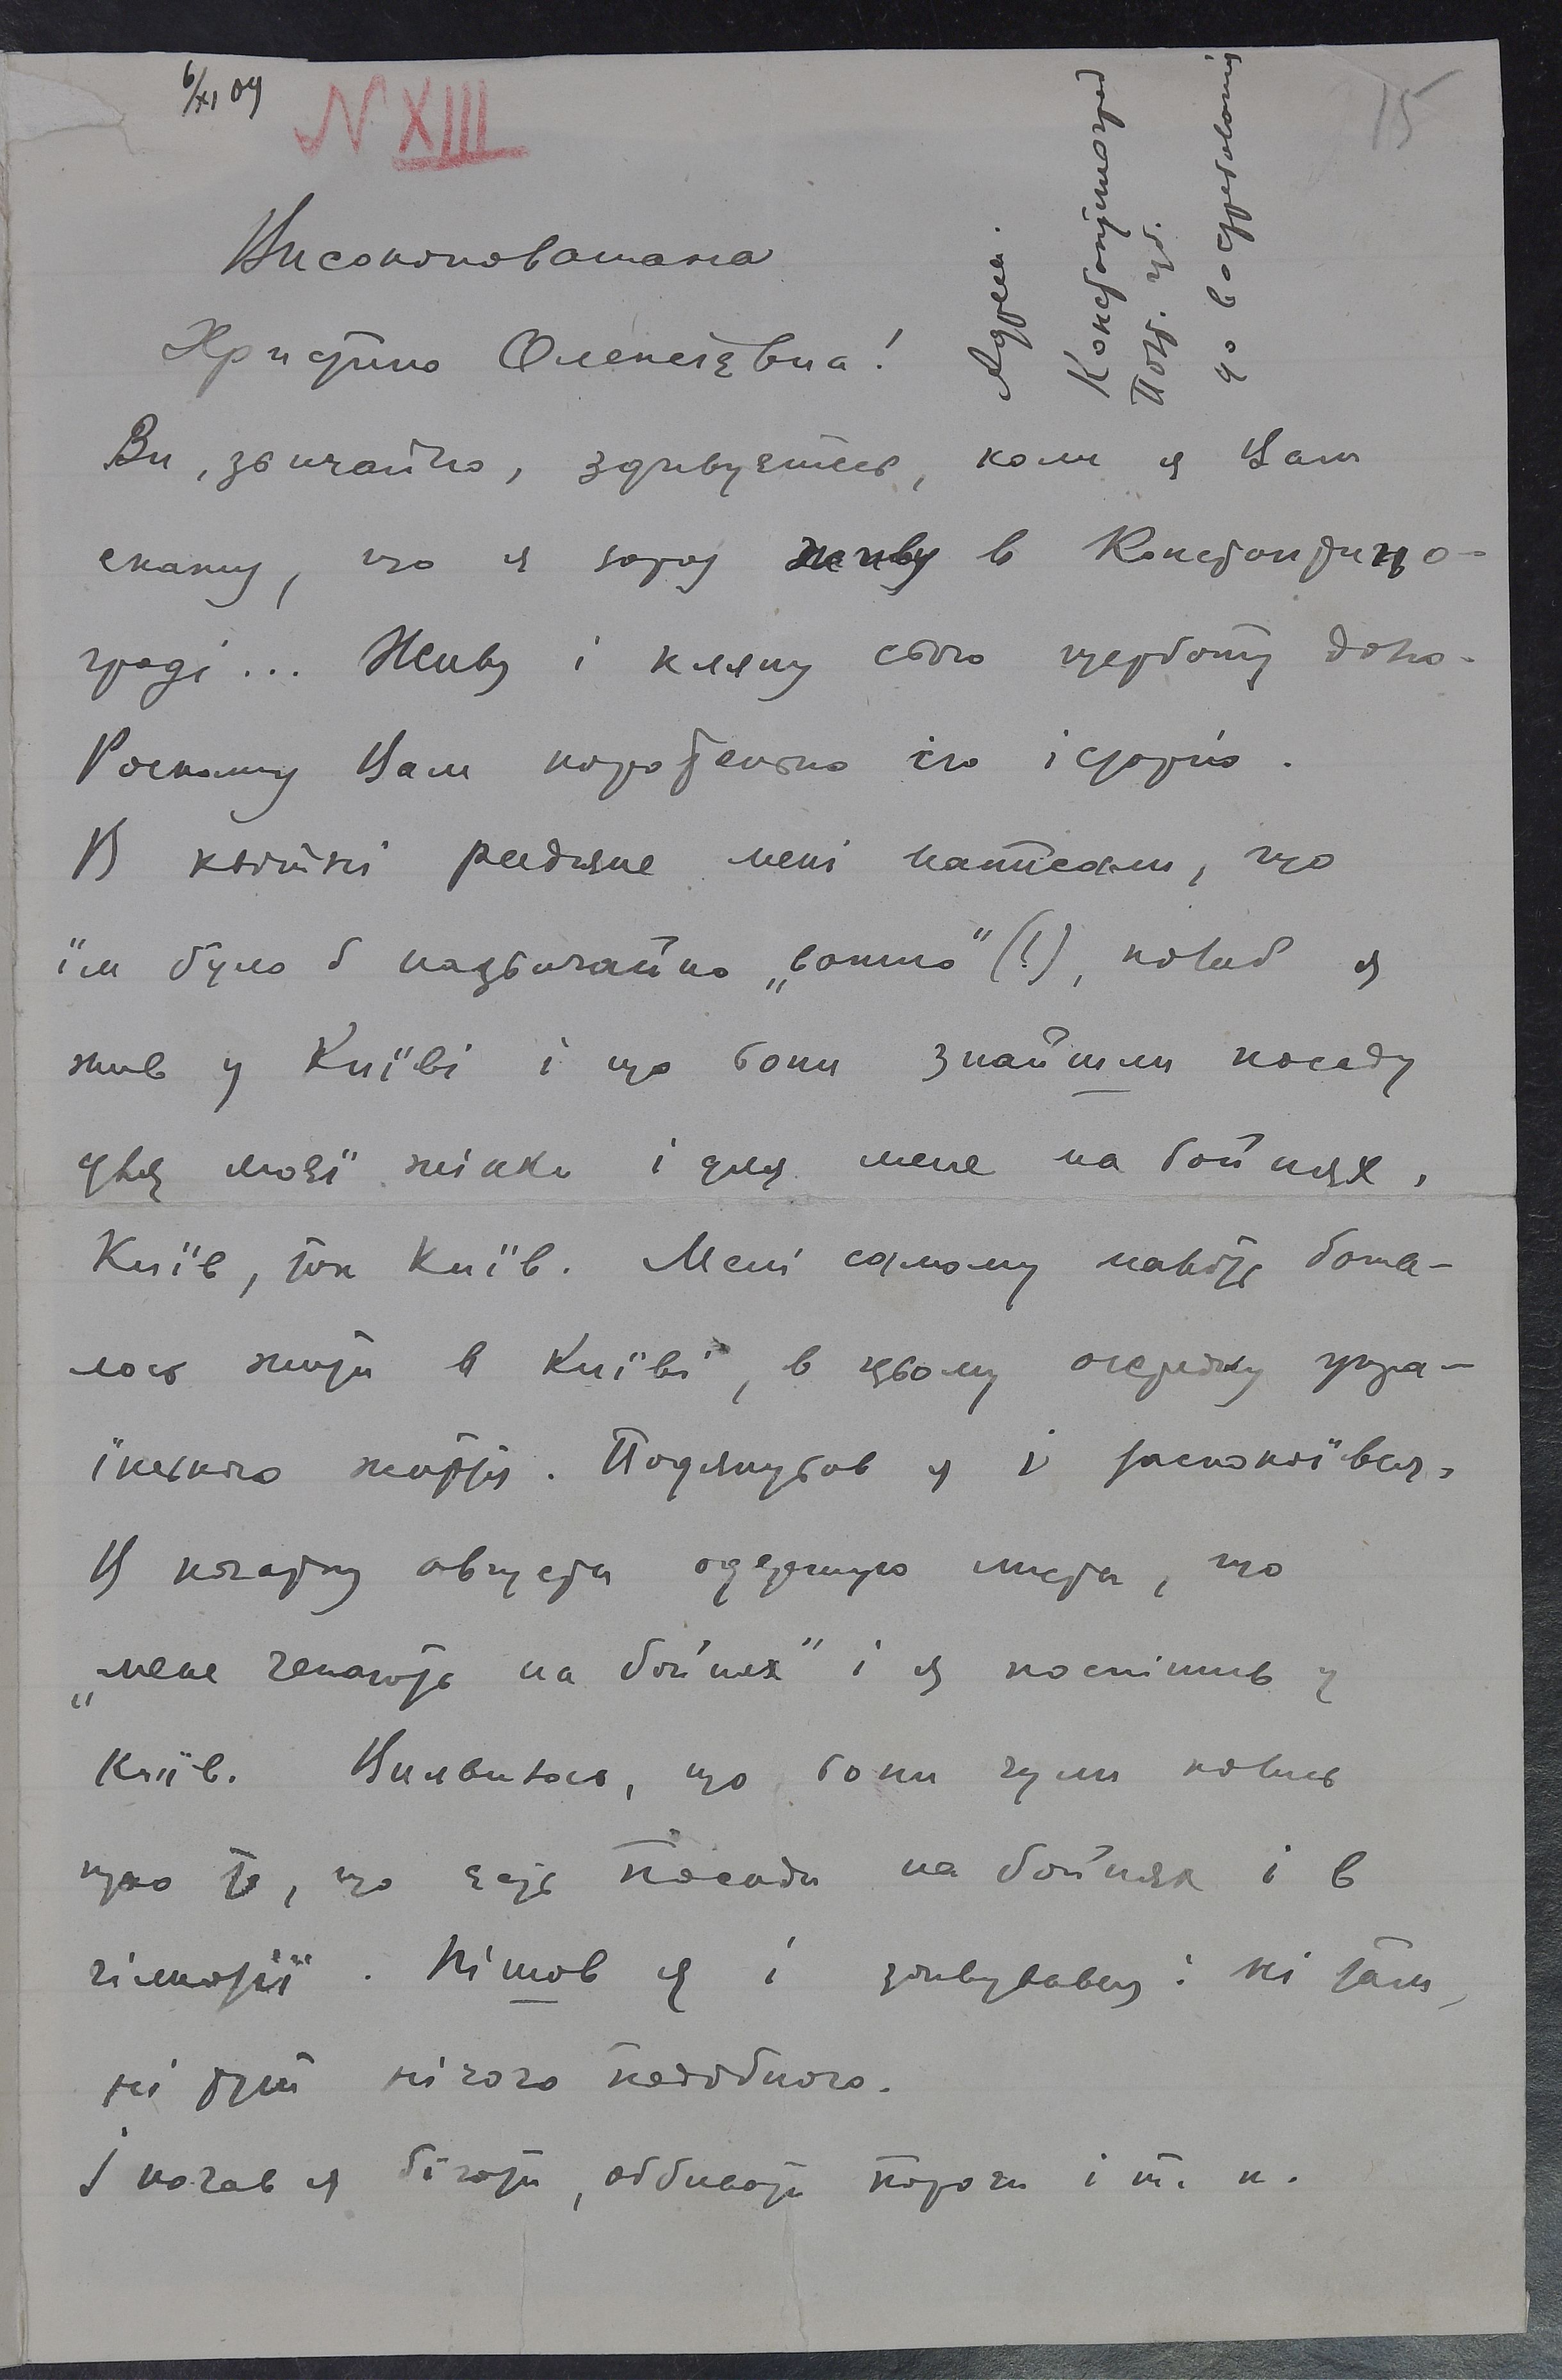 6/XI 09
N XIII
15
Адреса:
Констянтиноград
Полт. губ.
до востребованія
Високоповажана
Христино Олексієвна!
Ви, звичайно, здивуєтесь, коли я Вам
скажу, що я зараз живу в Константино-
граді... Живу і кляну свою щербату долю.
Роскажу Вам коротенько цю історію.
В квітні родичі мені написали, що
їм було б надзвичайно „важно" (!), колиб я
жив у Київі і що вони знайшли посаду
для моєї жінки і для мене на бойнях.
Київ, так Київ. Мені самому навіть бажа-
лось жити в Київі, в цьому осередку укра-
їнського життя. Подякував я і заспокоївся.
В початку августа одержую листа, що
„мене чекають на бойнях" і я поспішив у
Київ. Виявилось, що вони чули колись
про те, що єсть посади на бойнях і в
гімназії. Пішов я і здивувався: ні там,
ні тут нічого подобного.
І почав я бігати, оббивати пороги і т. п.